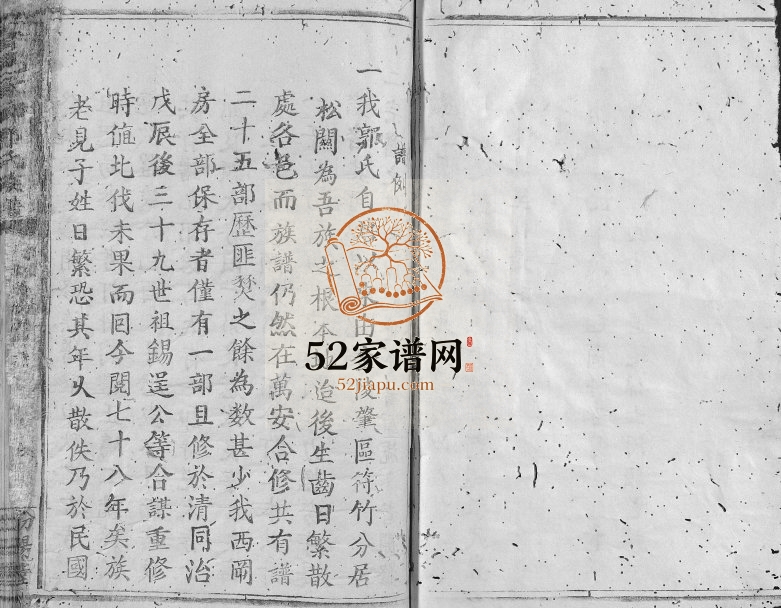 譜例
一我郭氏自
松關為吾族之根本
造後生齒日繁散
肇區符竹分居
處各邑而族譜仍然在萬安合修共有譜
二十五部歷匪燹之餘為数甚少我西岡
房全部保存者僅有一部且修於清同治
戊辰後三十九世祖錫逞公等合謀重修
時值北伐未果而回今閱七十八年矣族
老見子姓日繁恐其年乆散佚乃於民國
52家谱网
52jiapu.com